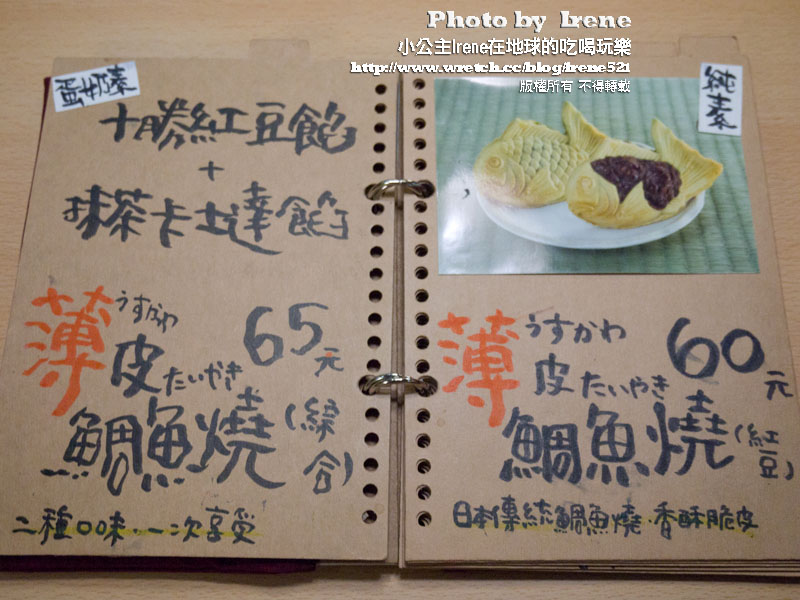 Photo by Irene
小公主Irene在地球的吃喝玩樂
http://www.wretch.cc/blog/irene521
版權所有 不得轉載
蛋奶素
十勝紅豆餡
+
抹茶卡士達餡
うすかわ
薄皮
たいやき
鯛魚燒
(綜合)
65元
二種口味·一次享受
純素
うすかわ
薄皮
たいやき
鯛魚燒
(紅豆)
60元
日本傳統鯛魚燒·香酥脆皮